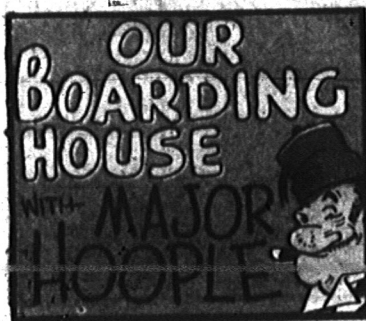 OUR
BOARDING
HOUSE
WITH MAJOR
HOOPLE